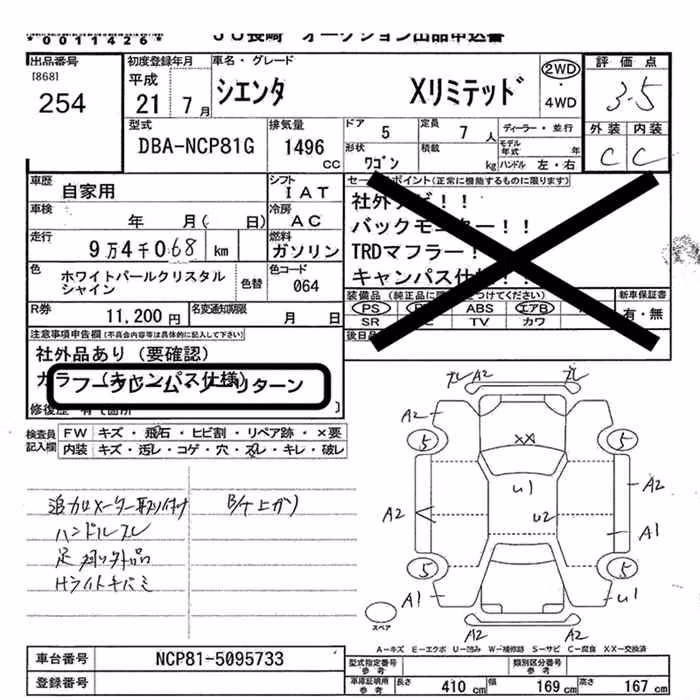 *0011426* JU長崎 オークション出品申込書
出品番号 初度登録年月 車名・グレード 2WD 評価点
[868] 平成 シエンタ Xリミテッド ・4WD 3.5
254 21年 7月
型式 排気量 ドア 5 定員 7人 ディーラー・並行 外装 内装
DBA-NCP81G 1496cc 形状 ワゴン 積載 kg モデル年式 年 ハンドル 左・右 C C
車歴 自家用 シフト IAT セールスポイント(正常に機能するものに限ります)
車検 年 月( 日) 冷房 AC 社外ナビ!!
走行 9万4千068 km 燃料 ガソリン バックモニター!!
TRDマフラー!
色 ホワイトパールクリスタルシャイン 色替 色コード 064 キャンパス仕様!!
R券 11,200円 名変通知期限 月 日 装備品(純正品に限 つけてください) 新車保証書
PS ABS エアB 有・無
SR TV カワ
注意事項申告欄(不具合内容等は具体的に記入して下さい) 後日品
社外品あり(要確認)
カラー(キャンパス仕様)
ノークレーム・ノーリターン
修復歴 有(箇所 )
検査員記入欄 FW キズ・飛石・ヒビ割・リペア跡・×要
内装 キズ・汚レ・コゲ・穴・スレ・キレ・破レ
追加メーター取り付け B/ド上がり
ハンドルスレ
足 外品
Hライトキバミ
A2 A2
A2
5 5
XX
U1 A2
A2 U2 A1
5 5
A1 U1
A2 A2
スペア
A-キズ E-エクボ U-凹み W-補修跡 S-サビ C-腐食 XX-交換済
車台番号 NCP81-5095733 型式指定番号参考 類別区分番号参考
登録番号 車庫証明用参考 長さ 410cm 幅 169cm 高さ 167cm